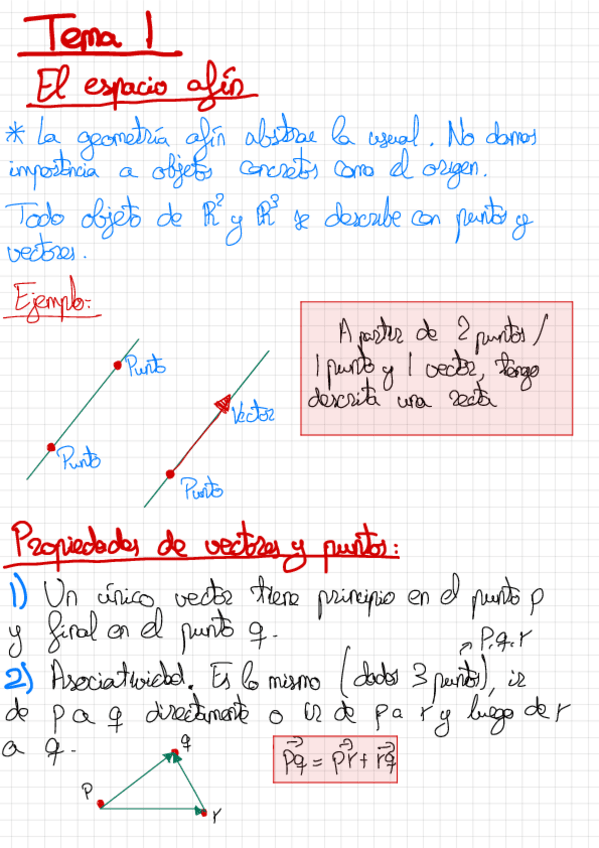 Tema 1
El espacio afín
* La geometría afín abstrae la usual. No damos
importancia a objetos concretos como el origen.
Todo objeto de ℝ² y ℝ³ se describe con puntos y
vectores.
Ejemplo:
A partir de 2 puntos /
1 punto y 1 vector, tengo
descrita una recta
Punto
Punto
Vector
Punto
Propiedades de vectores y puntos:
1) Un único vector tiene principio en el punto p
y final en el punto q.
↗ p, q, r
2) Asociatividad. Es lo mismo (dados 3 puntos), ir
de p a q directamente o ir de p a r y luego de r
a q.
q
p
r
p⃗q = p⃗r + r⃗q